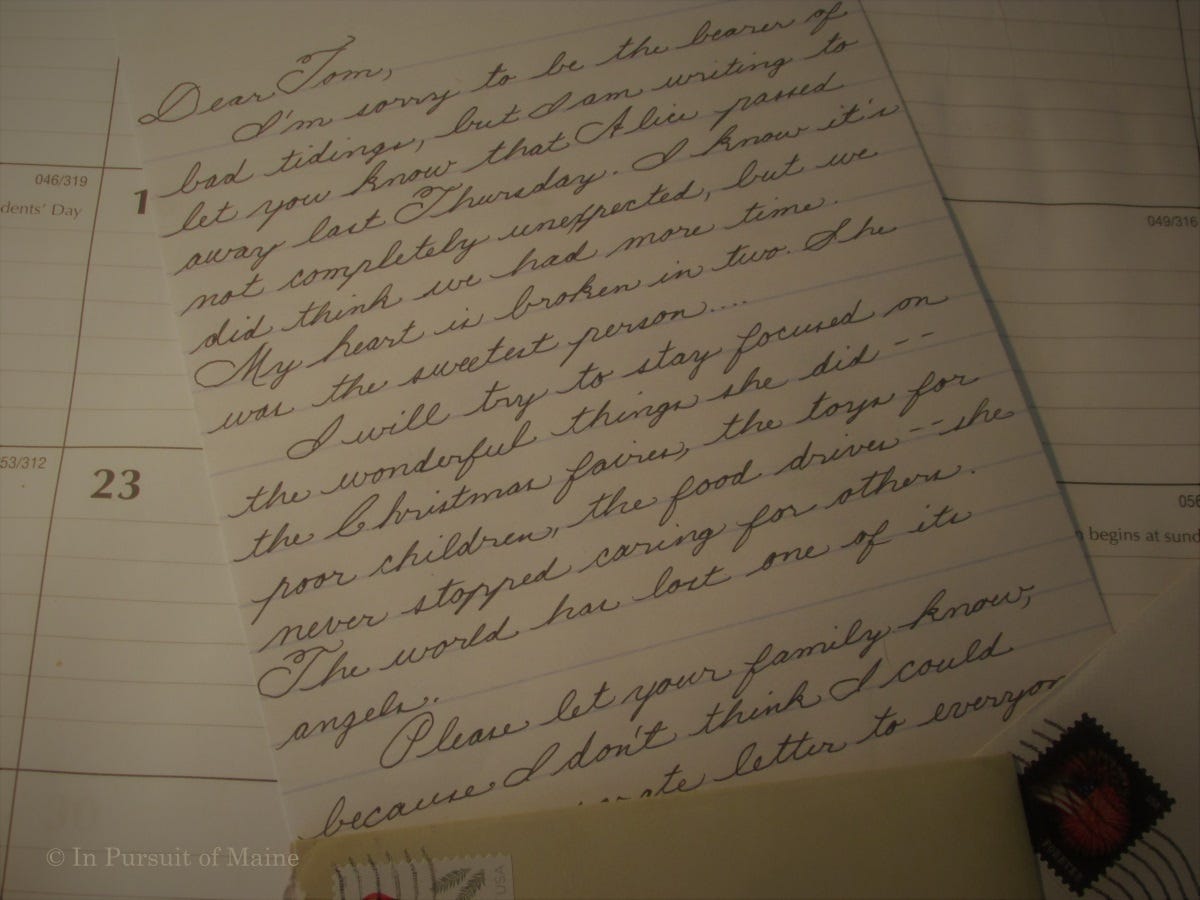 Dear Tom,
I'm sorry to be the bearer of
bad tidings, but I am writing to
let you know that Alice passed
away last Thursday. I know it's
not completely unexpected, but we
did think we had more time.
My heart is broken in two. She
was the sweetest person....
I will try to stay focused on
the wonderful things she did --
the Christmas faires, the toys for
poor children, the food drives -- she
never stopped caring for others.
The world has lost one of its
angels.
Please let your family know,
because I don't think I could
letter to everyon
046/319
dents' Day
1
53/312
23
049/316
056
begins at sund
USA
FOREVER
© In Pursuit of Maine